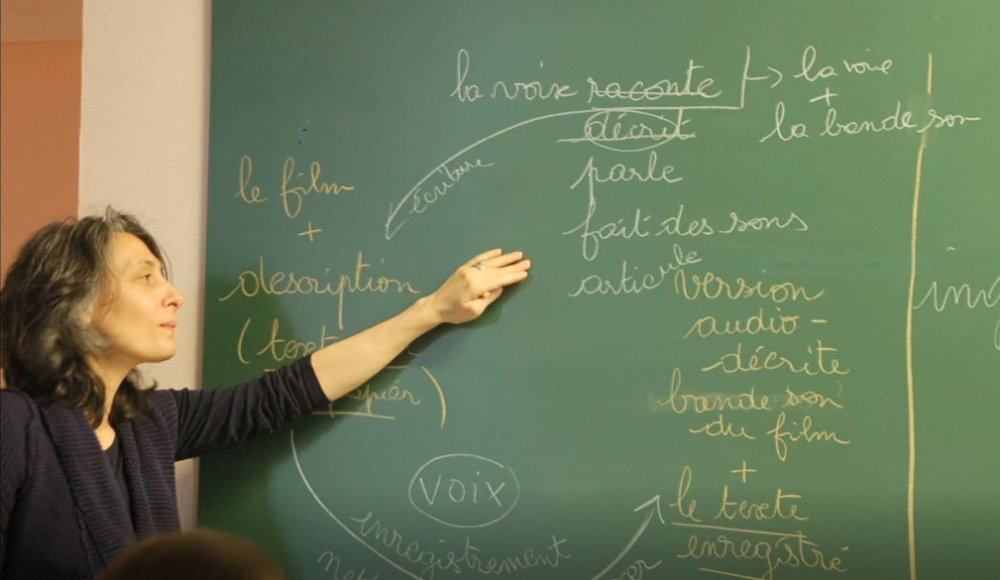 la voix raconte
décrit
parle
fait des sons
articule
la voie
+
la bande son
écriture
le film
+
description
(texte
papier)
version
audio-
décrite
bande son
du film
+
le texte
enregistré
voix
enregistrement